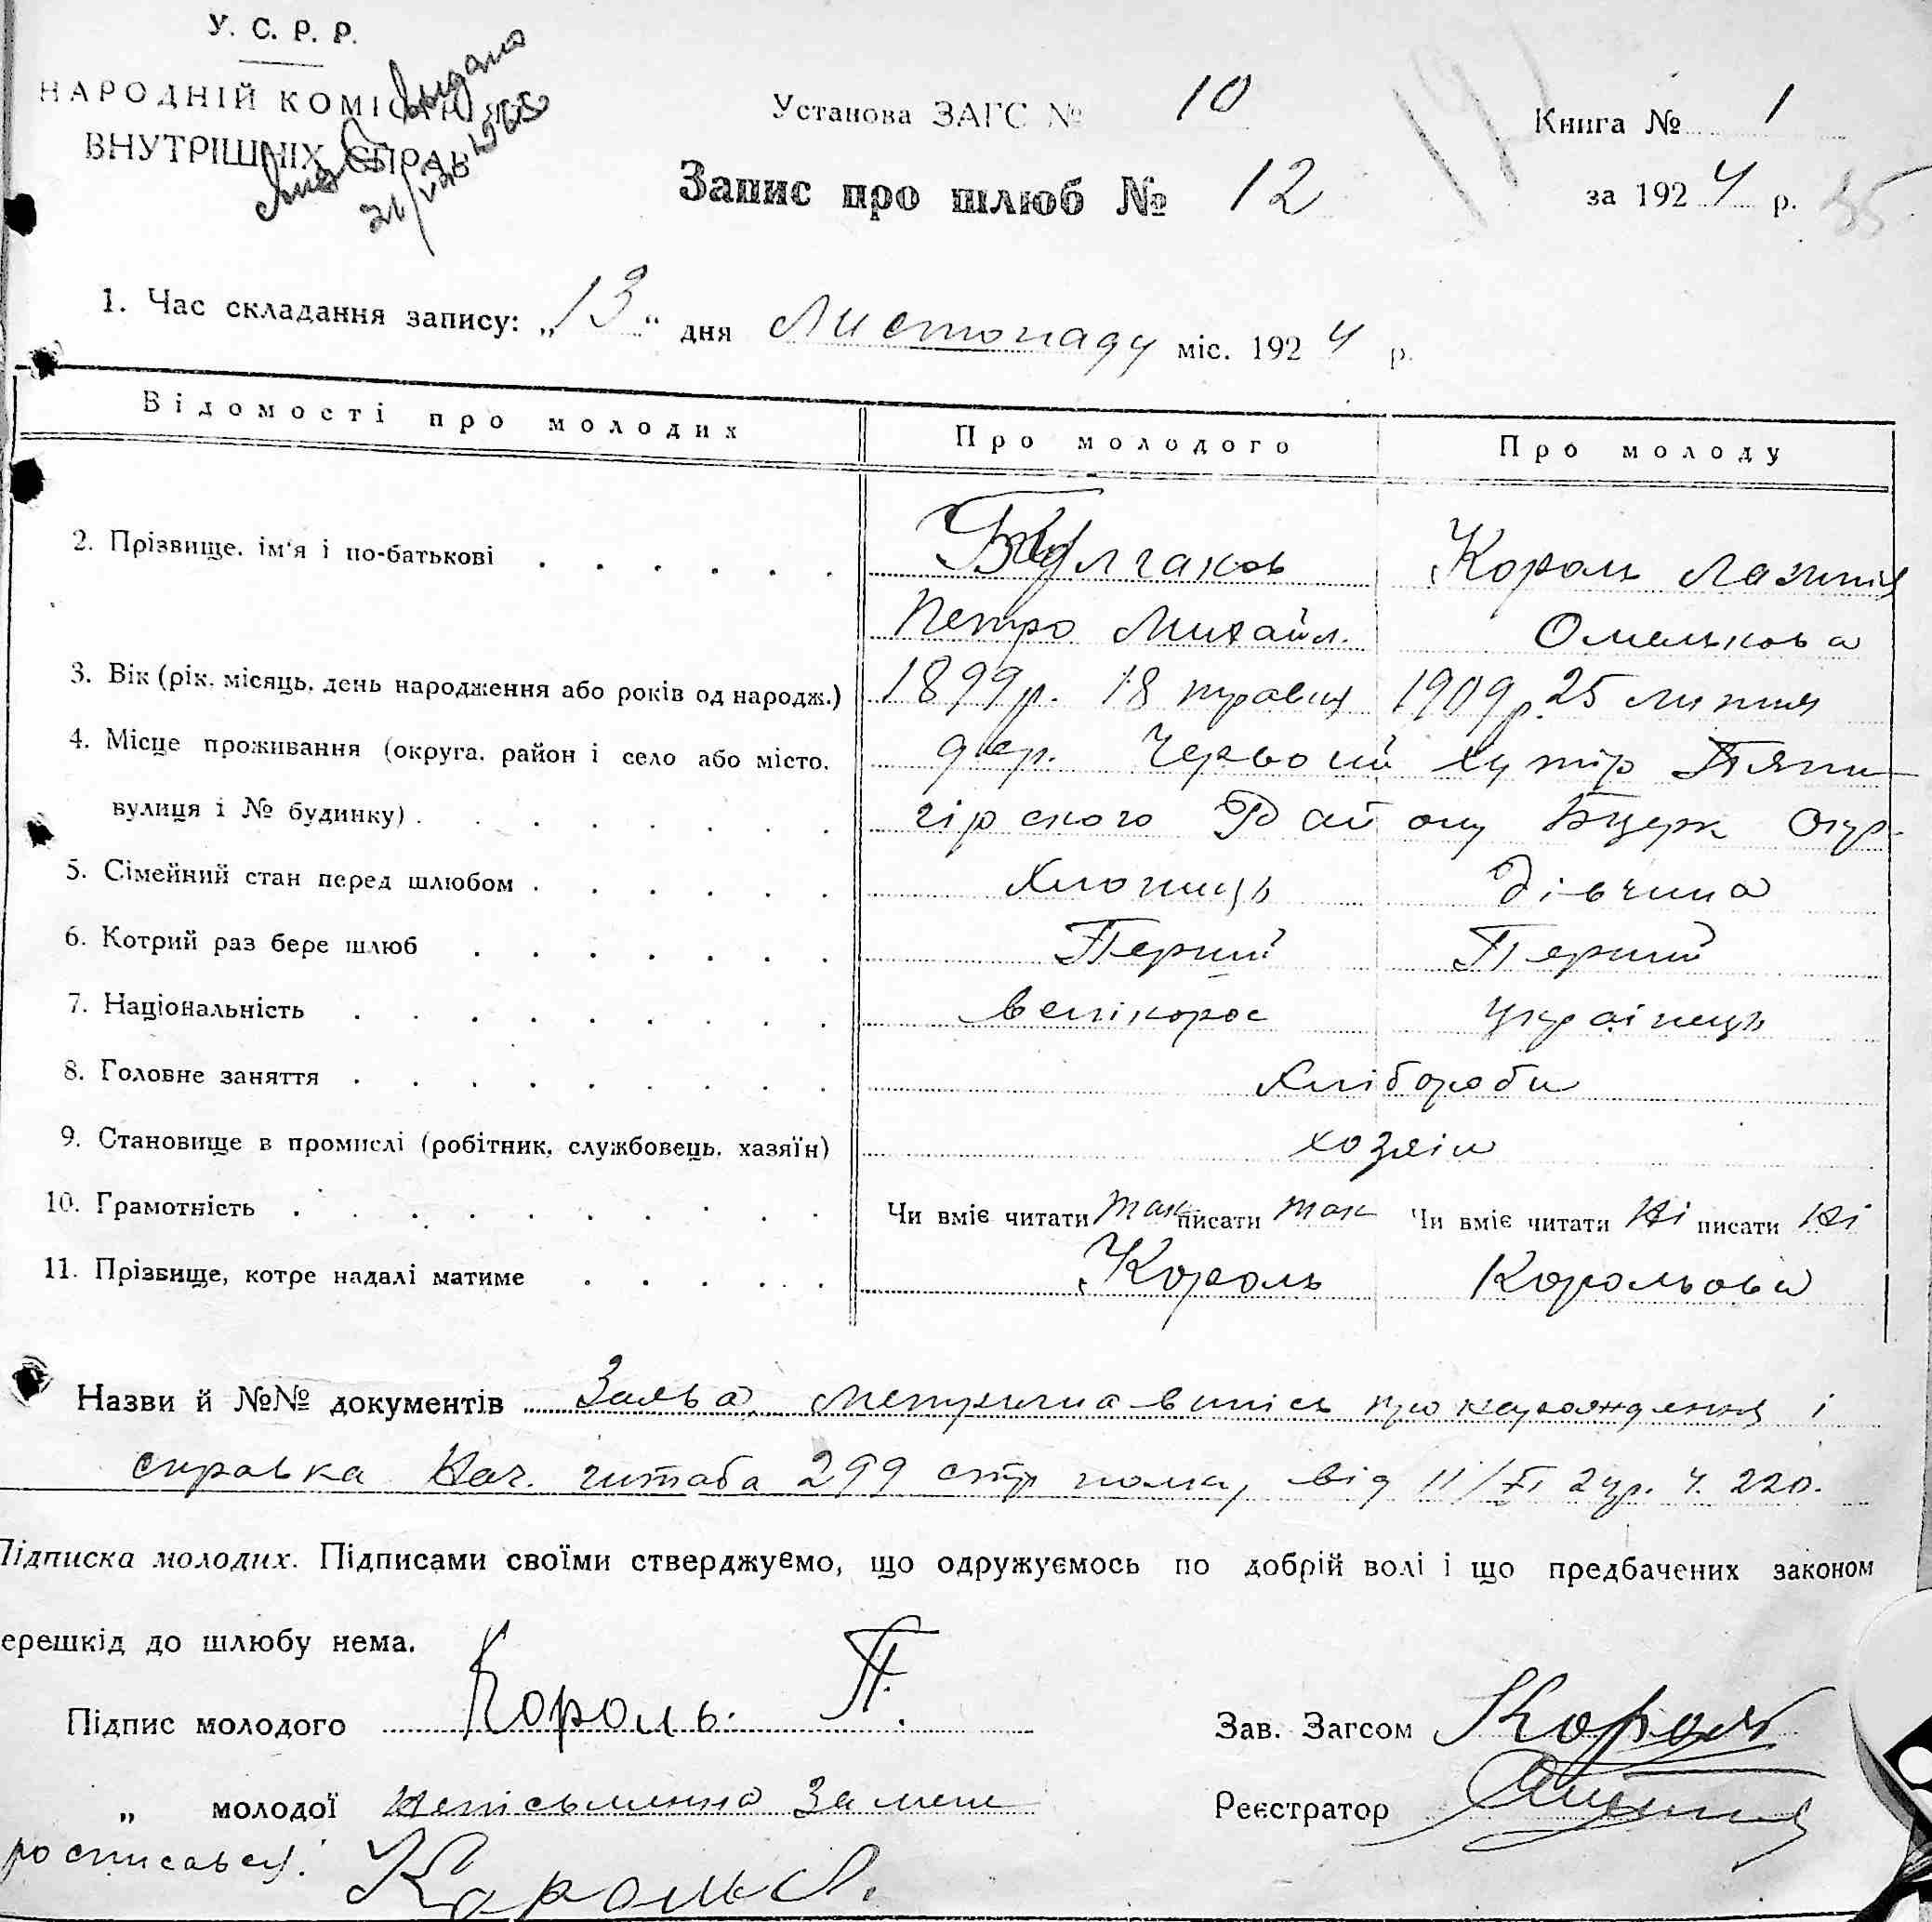 У. С. Р. Р.
НАРОДНІЙ КОМІСАРІЯТ
ВНУТРІШНІХ СПРАВ
видано
21/VIII 1965
Установа ЗАГС № 10
Книга № 1
Запис про шлюб № 12
за 1924 р.
1. Час складання запису: „13“ дня Листопаду міс. 1924 р.
Відомості про молодих Про молодого Про молоду
2. Прізвище, ім'я і по-батькові Булгаков Король
Петро Михайл. Омелькова
3. Вік (рік, місяць, день народження або років од народж.) 1899 р. 18 травця 1909 р. 25 липня
4. Місце проживання (округа, район і село або місто, дер. Червоний хутір Пяти-
вулиця і № будинку) гірского Району Бцерк Окр.
5. Сімейний стан перед шлюбом хлопиць дівчина
6. Котрий раз бере шлюб Перший Перший
7. Національність велікорос українець
8. Головне заняття хлібороби
9. Становище в промислі (робітник, службовець, хазяїн) хозяін
10. Грамотність Чи вміє читати так писати так Чи вміє читати ні писати ні
11. Прізвище, котре надалі матиме Король Корольова
Назви й №№ документів Заява, метрична випісь про народження і
справка Нач. штаба 299 стр полка, від 11/XI 24р. ч. 220.
Підписка молодих. Підписами своїми стверджуємо, що одружуємось по добрій волі і що предбачених законом
ерешкід до шлюбу нема.
Підпис молодого Король. П.
Зав. Загсом Король
„ молодої непісьменна за мене
Реєстратор
росписався:
Король